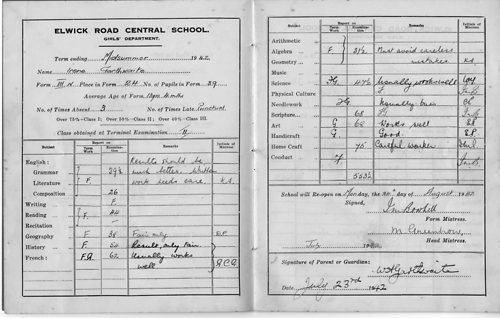 ELWICK ROAD CENTRAL SCHOOL.
GIRLS' DEPARTMENT.
Term ending Midsummer 1942
Name Irene Garthwaite
Form III Place in Form 24 No. of Pupils in Form 39
Average Age of Form
No. of Times Absent 3 No. of Times Late Punctual
Over 75%=Class I; Over 50%=Class II; Over 40%=Class III.
Class obtained at Terminal Examination II
Subject Report on Remarks Initials of Mistress
Term Work Examination
English: Results should be
Grammar 29½ much better. Written
Literature F. work needs care. K.A.
Composition 26
Writing F.
Reading F. 44
Recitation
Geography F 38 Fair only
History F. 54 Result only Fair.
French: F.G. 62 Usually works
well
Subject Report on Remarks Initials of Mistress
Term Work Examination
Arithmetic
Algebra F. 31½ Must avoid careless
Geometry mistakes K.A.
Music
Science F.G. 47½ Usually works well
Physical Culture F
Needlework F.G Usually tries
Scripture 68
Art G 68 Works well
Handicraft G. Good.
Home Craft 75 Careful worker
Conduct
553½
School will Re-open on Monday, the day of August 1942
Signed,
Form Mistress.
M.
Head Mistress.
Signature of Parent or Guardian:
W Garthwaite
Date July 23rd 1942